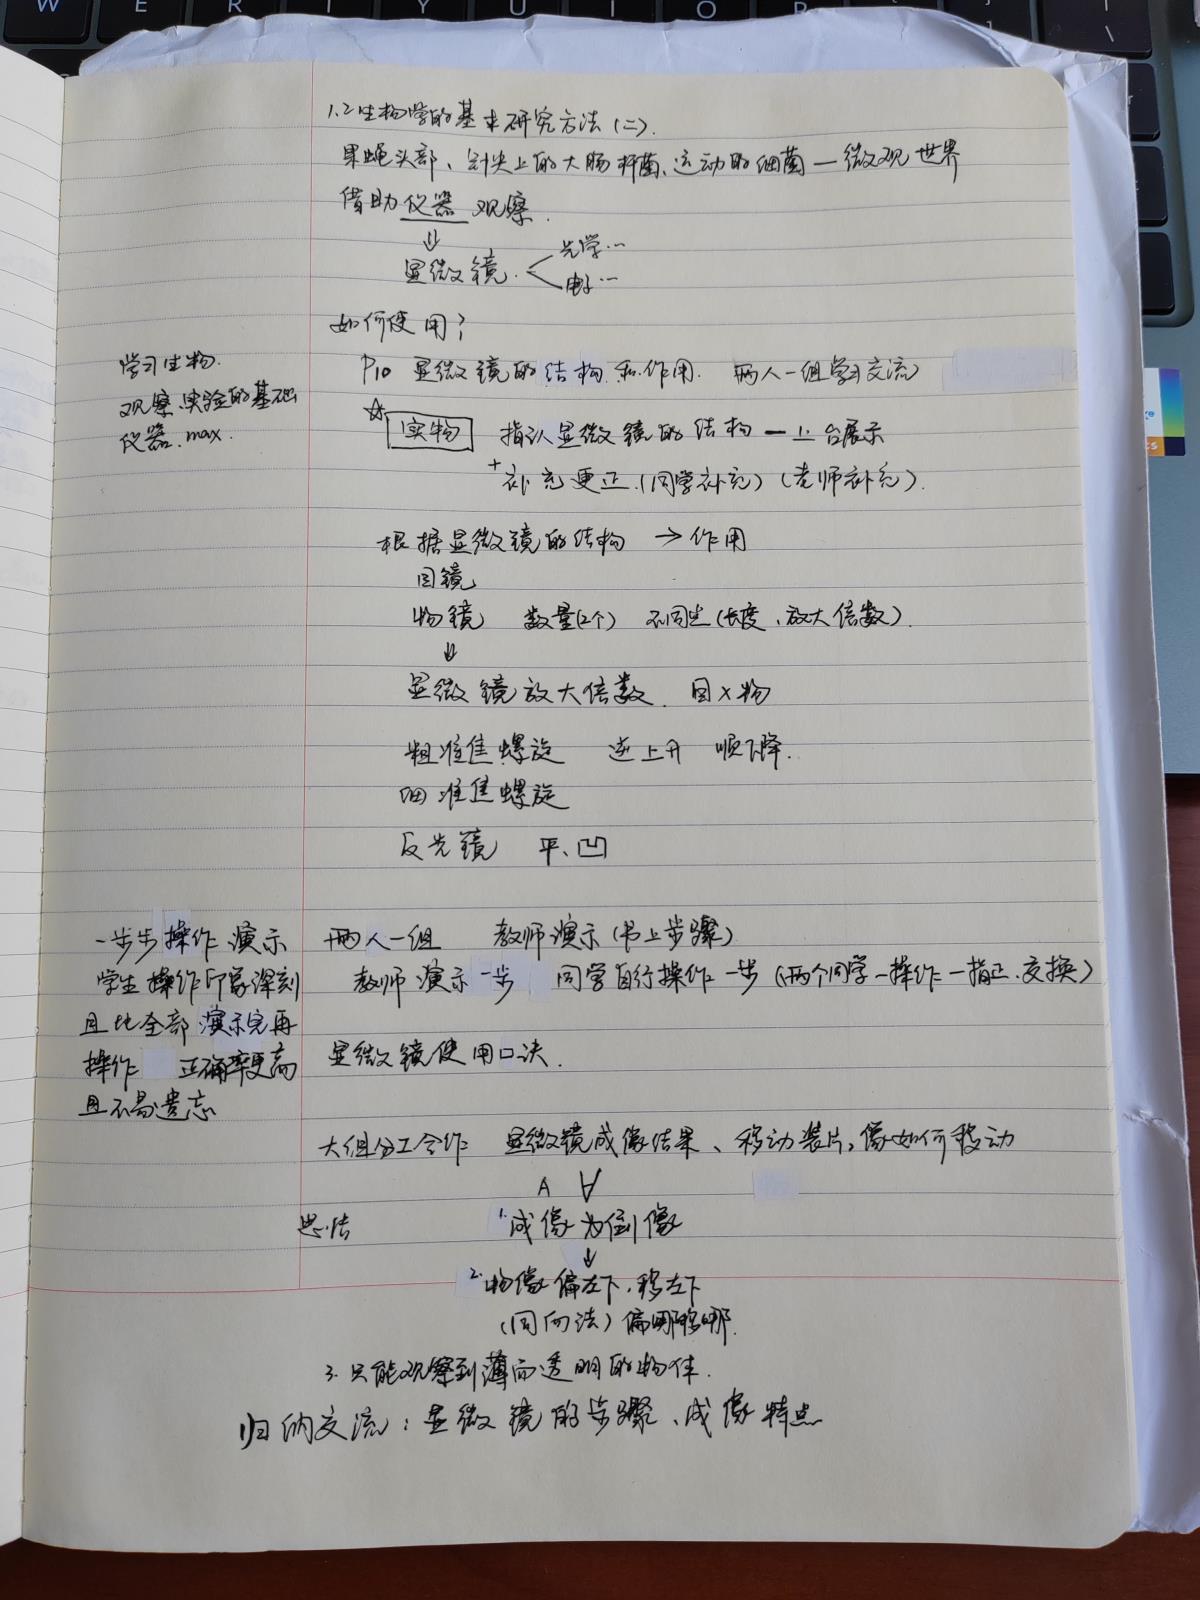 W E R T Y U I O P
1.2 生物学的基本研究方法(二).
果蝇头部、针尖上的大肠杆菌、运动的细菌—微观世界
借助仪器 观察.
⇓
显微镜. 光学…
电子…
如何使用?
P10 显微镜的结构和作用. 两人一组学习交流
学习生物.
观察、实验的基础
仪器. max.
☆ 实物 指认显微镜的结构 — 上台展示
+补充更正.(同学补充)(老师补充).
根据显微镜的结构 → 作用
目镜
物镜 数量(2个) 不同点(长度、放大倍数).
↓
显微镜放大倍数. 目×物
粗准焦螺旋 逆上升 顺下降.
细准焦螺旋
反光镜 平、凹
一步步操作、演示
学生操作印象深刻
且比全部演示完再
操作 正确率更高
且不易遗忘
两人一组 教师演示(书上步骤)
教师演示一步 同学自行操作一步(两个同学一操作一指正.交换)
显微镜使用口诀.
大组分工合作 显微镜成像结果、移动装片,像如何移动
A ∀
总结
1.成像为倒像
↓
2.物像偏左下.移左下
(同向法)偏哪移哪.
3.只能观察到薄而透明的物体.
归纳交流:显微镜的步骤、成像特点